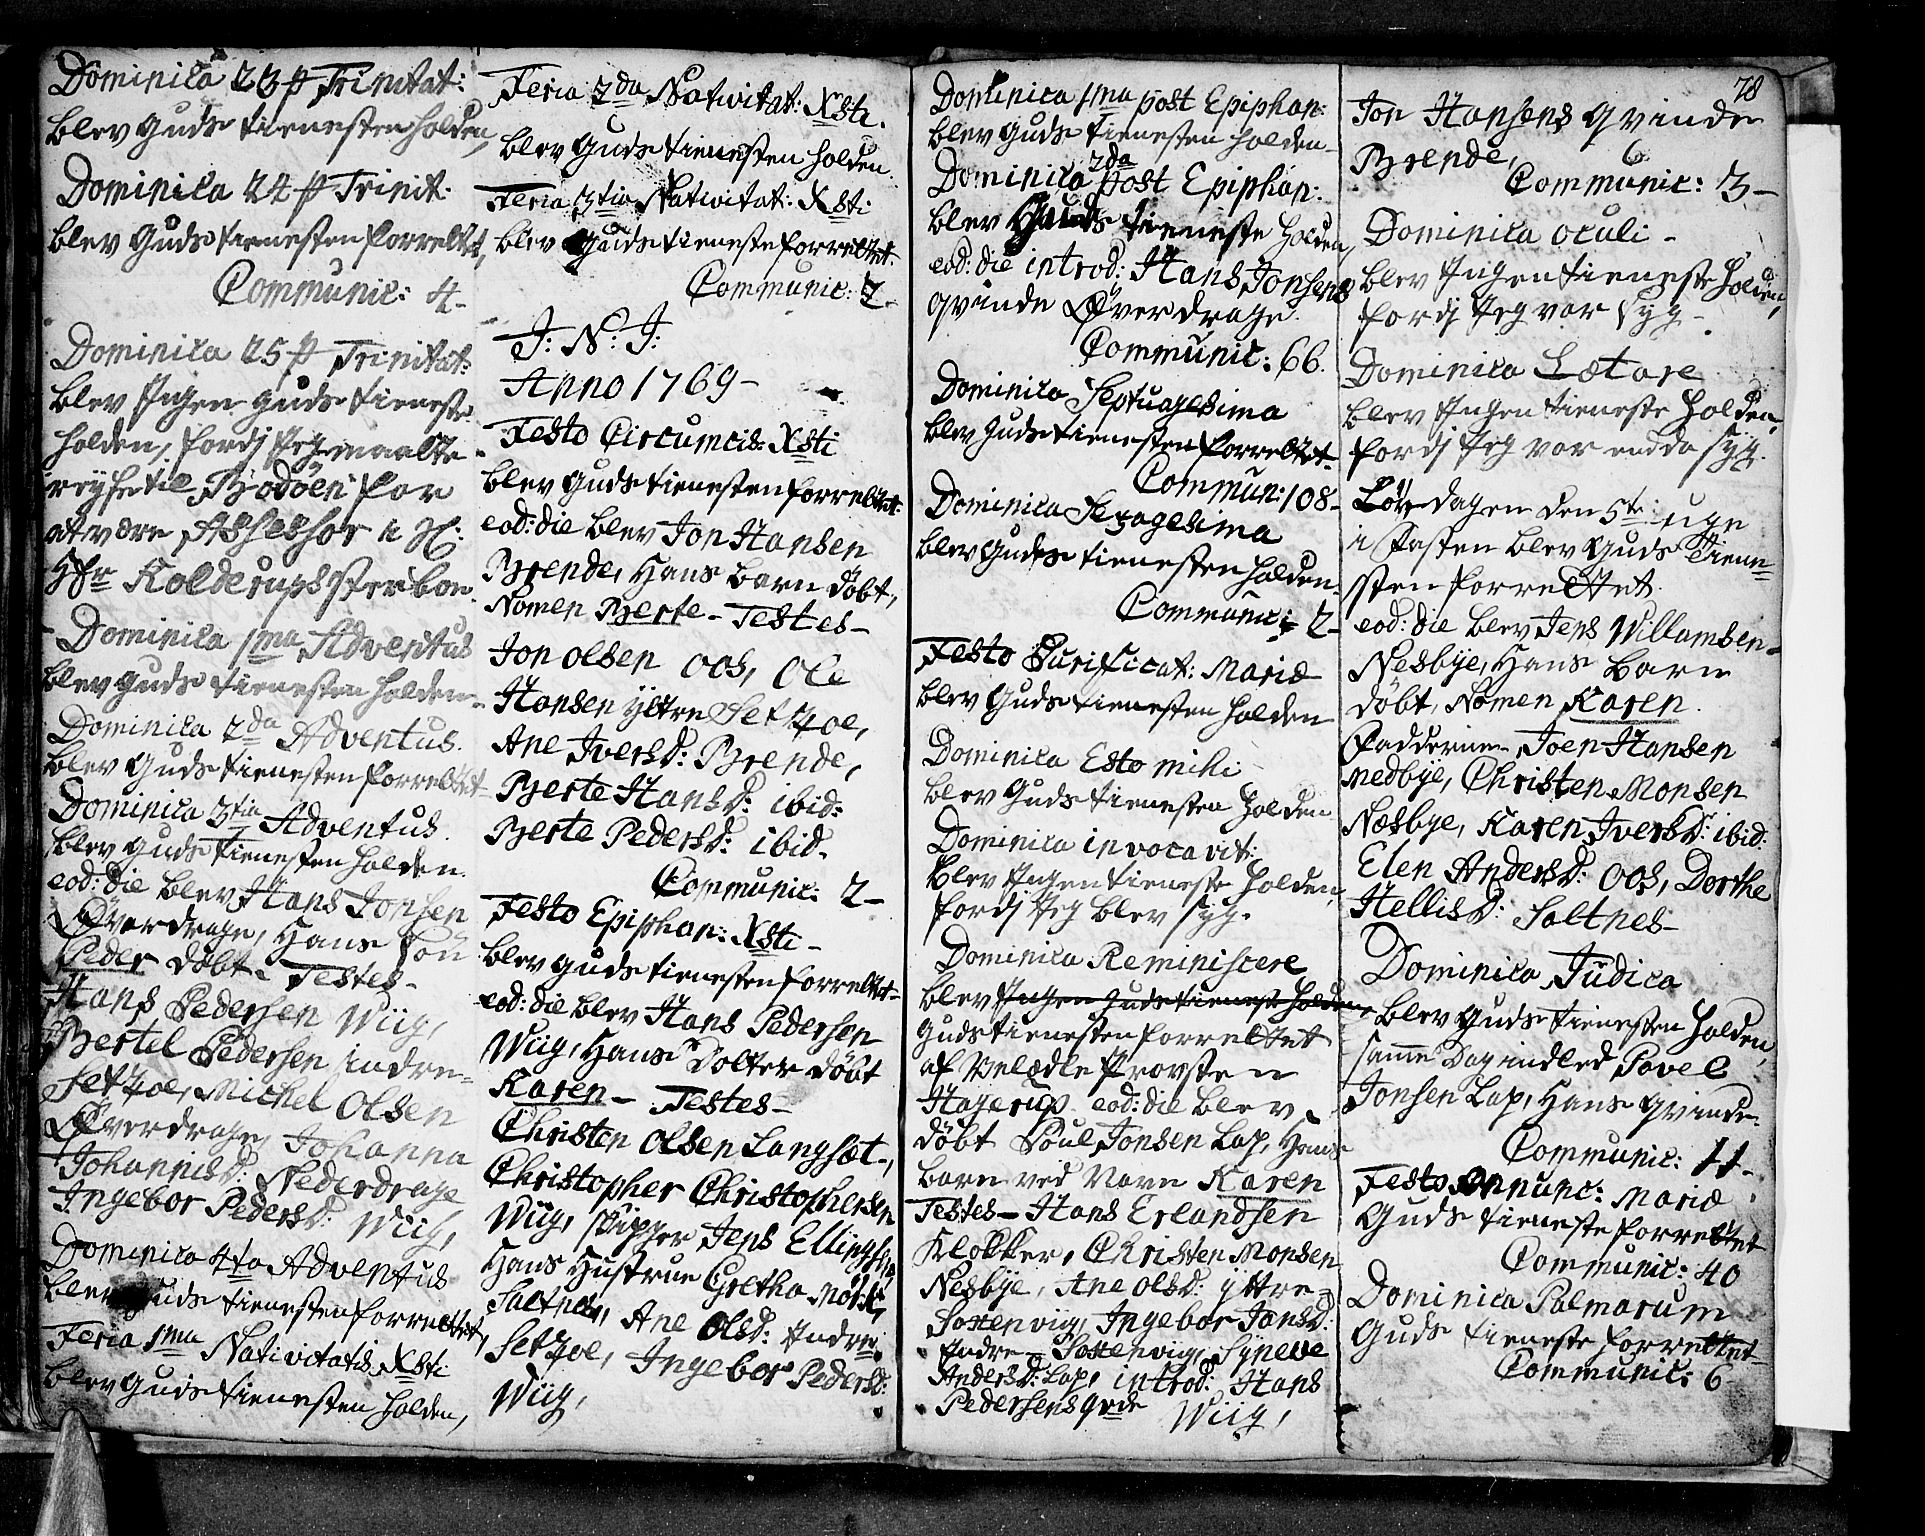 Dominica 23 p Trinitat:
blev Guds tienesten holden,
Dominica 24 p Trinit:
blev Guds tienesten forrettet,
Communic: 4-
Dominica 25 p Trinitat:
blev Ingen Guds tieneste
holden, fordj Jeg maatte
reyse til Bodöen for
at være Assessor i
Kolderups sterboe.
Dominica 1ma Adventus
blev Guds tienesten holden-
Dominica 2da Adventus.
blev Guds tienesten forrettet-
Dominica 3tia Adventus.
blev Guds tienesten holden.
eod: die blev Hans Jonsen
Øverdrage, Hans Sön
Peder döbt- Testes-
Hans Pedersen Wiig,
Bertel Pedersen indre-
Setzoe, Michel Olsen
Øverdrage, Johanna
Johannisd: Nederdrage
Ingebor Pedersd: Wiig,
Dominica 4ta Adventus
blev Guds tienesten forrettet,
Feria 1ma Nativitatis Xsti
blev Guds tienesten holden,
Feria 2da Nativitat: Xsti.
blev Guds tienesten holden.
Feria 3tia Nativitat: Xsti
blev Guds tieneste forrettet.
Communic: 7-
J: N: J:
Anno 1769-
Festo Circumcis: Xsti
blev Guds tienesten forrettet.
eod: die blev Jon Hansen
Brende, Hans barn döbt,
Nomen Berte- Testes-
Jon olsen oos, Ole
Hansen ÿttre Setzoe,
Ane Iversd: Brende,
Berte Hansd: ibid:
Berte Pedersd: ibid.
Communic: 2-
Festo Epiphan: Xsti-
blev Guds tienesten forrettet-
eod: die blev Hans Pedersen
Wiig, Hans Dotter döbt
Karen- Testes-
Christen Olsen Langsæt-,
Christopher Christophersen
Wiig, skipper Jens Ellingsen
Hans Hustrue Gretha Mörk,
Saltnes, Ane Olsd: Indre
Setzoe, Ingebor Pedersd:
Wiig,
Dominica 1ma post Epiphan:
blev Guds tienesten holden-
Dominica 2da post Epiphan:
blev Guds tieneste holden,
eod: die introd: Hans Jonsens
qvinde Øverdrage.
Communic: 66.
Dominica Septuagesima
blev Guds tienesten forrettet-
Commun: 108-
Dominica Sexagesima
blev Guds tienesten holden.
Communic: 2-
Festo Purificat: Mariæ
blev Guds tienesten holden
Dominica Esto mihi-
blev Guds tienesten holden
Dominica invocavit:
blev Ingen tieneste holden,
fordj Jeg blev syg.
Dominica Reminiscere
blev Ingen Guds tieneste holden,
Guds tienesten forrettet
af Velædle Provsten
Hagerup. eod: die blev
döbt Poul Jonsen Lap, Hans
barn ved Navn Karen
Testes- Hans Erlandsen
Klokker, Christen Monsen
Nesbye, Ane olsd: yttre-
Soxenviig, Ingebor Jonsd:
Indre- Soxenvig, Syneve
Andersd: Lap, introd: Hans
Pedersens qvde Wiig,
78
Jon Hansens qvinde
Brende,
Communic: 3-
Dominica oculi-
blev Ingen tieneste holden,
fordj Jeg var syg-
Dominica Lætare
blev Ingen tieneste holden,
fordj Jeg var endda syg.
Löverdagen den 5te uge
i fasten blev Guds tiene=
sten forrettet.
eod: die blev Jens Willamsen-
Nesbye, Hans barn
döbt, Nomen Karen.
fadderne- Joen Hansen
Medbye, Christen Monsen
Næsbye, Karen Iversd: ibid:
Elen Andersd: oos, Dorthe
Hellisd: Saltnes-
Dominica Judica
blev Guds tienesten holden,
samme Dag indled Povel
Jonsen Lap, Hans qvinde-
Communic: 11-
Festo Annunc: Mariæ
Guds tieneste forrettet
Communic: 40
Dominica Palmarum
Guds tieneste forrettet-
Communic: 6